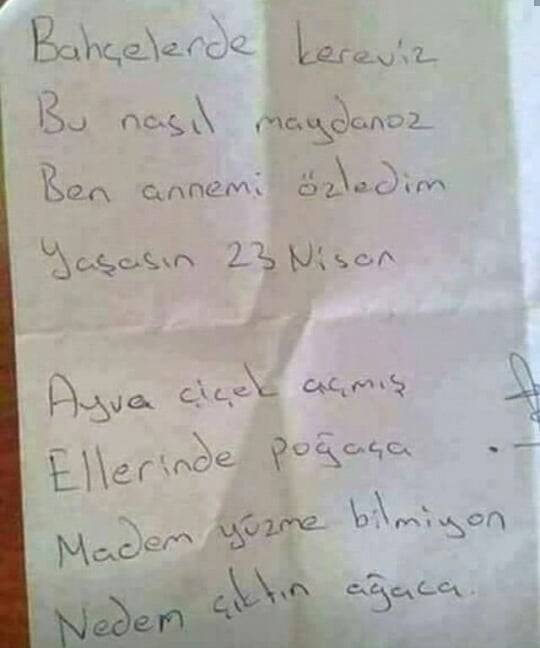 Bahçelerde kereviz
Bu nasıl maydanoz
Ben annemi özledim
Yaşasın 23 Nisan
Ayva çiçek açmış
Ellerinde poğaça
Madem yüzme bilmiyon
Nedem çıktın ağaca.